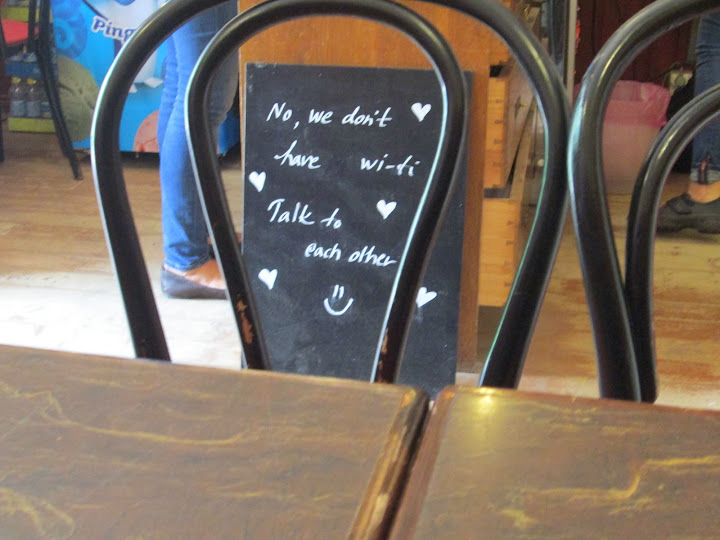 Ping
No, we don't
have wi-fi
Talk to
each other